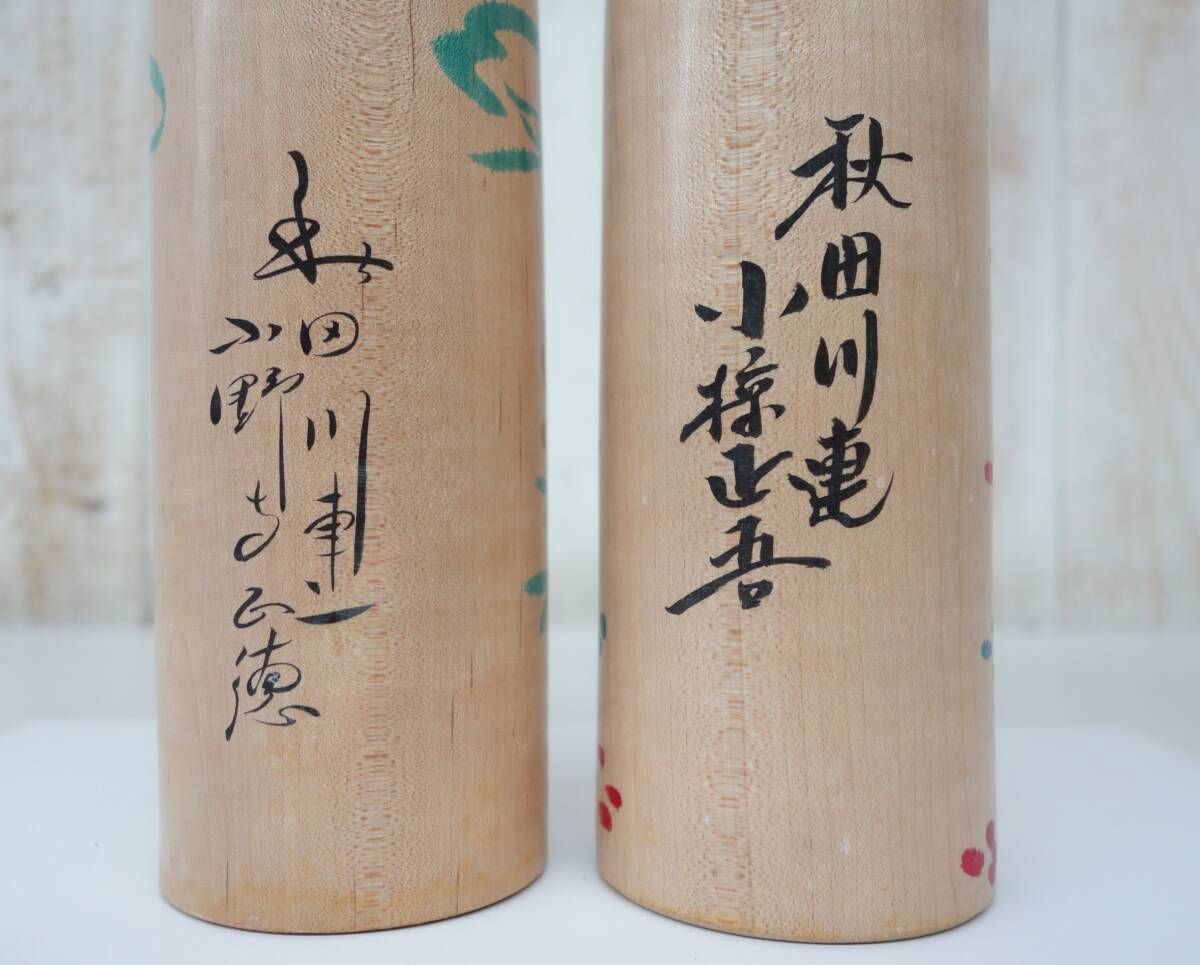 秋田川連
小野寺正徳
秋田川連
小椋正吾